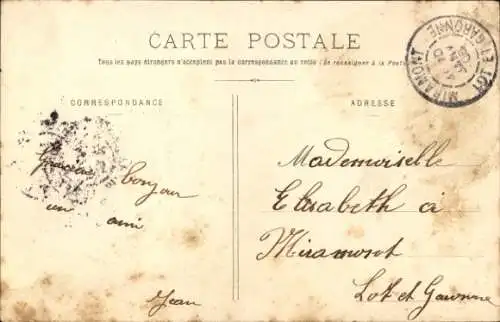 CARTE POSTALE
Tous les pays étrangers n'acceptent pas la correspondance au recto (Se renseigner à la Poste)
CORRESPONDANCE
ADRESSE
MIRAMONT
LOT ET GARONNE
bonjour
un ami
Jean
Mademoiselle
Elisabeth à
Miramont
Lot et Garonne